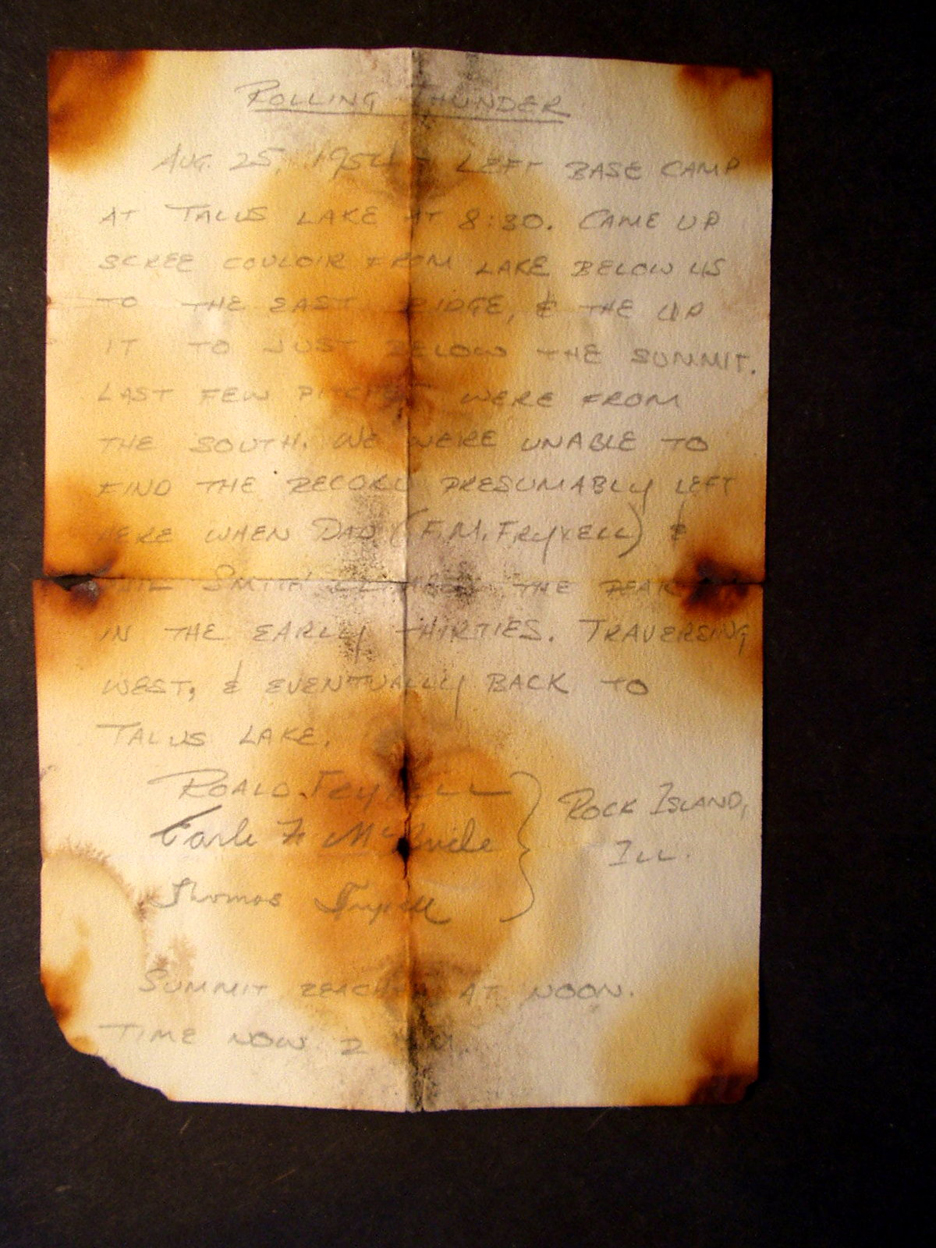 ROLLING THUNDER
AUG. 25, 1954 - LEFT BASE CAMP
AT TALUS LAKE AT 8:30. CAME UP
SCREE COULOIR FROM LAKE BELOW US
TO THE EAST RIDGE, & THE UP
IT TO JUST BELOW THE SUMMIT.
LAST FEW PITCHES WERE FROM
THE SOUTH. WE WERE UNABLE TO
FIND THE RECORD PRESUMABLY LEFT
HERE WHEN DAD (F.M. FRYXELL) &
PHIL SMITH CLIMBED THE PEAK
IN THE EARLY THIRTIES. TRAVERSING
WEST, & EVENTUALLY BACK TO
TALUS LAKE.
ROALD FRYXELL
Earle F. McGuile
Thomas Fryxell
ROCK ISLAND,
ILL.
SUMMIT REACHED AT NOON.
TIME NOW 2